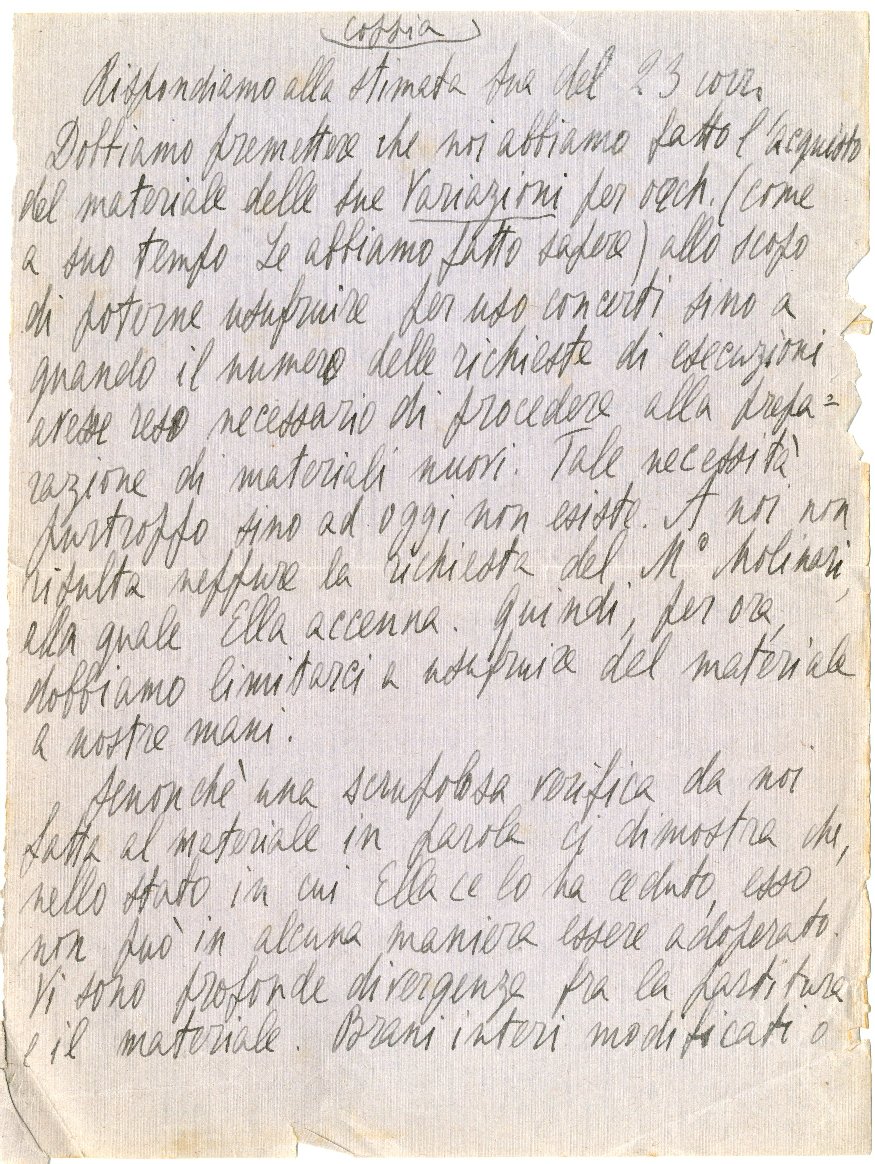 coppia
Rispondiamo alla stimata sua del 23 corr.
Dobbiamo premettere che noi abbiamo fatto l'acquisto
del materiale delle sue Variazioni per orch. (come
a suo tempo Le abbiamo fatto sapere) allo scopo
di poterne usufruire per uso concerti sino a
quando il numero delle richieste di esecuzioni
avesse reso necessario di procedere alla prepa=
razione di materiali nuovi. Tale necessità
purtroppo sino ad oggi non esiste. A noi non
risulta neppure la richiesta del M° Molinari,
alla quale Ella accenna. Quindi, per ora,
dobbiamo limitarci a usufruire del materiale
a nostre mani.
Senonchè una scrupolosa verifica da noi
fatta al materiale in parola ci dimostra che,
nello stato in cui Ella ce lo ha ceduto, esso
non può in alcuna maniera essere adoperato.
Vi sono profonde divergenze fra la partitura
e il materiale. Brani interi modificati o